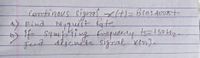 Continous signal x(t) = 8 sin 400πt
a) Find Nyquist Rate
b) If sampling frequency fs = 150Hz.
find discrete signal x(n).